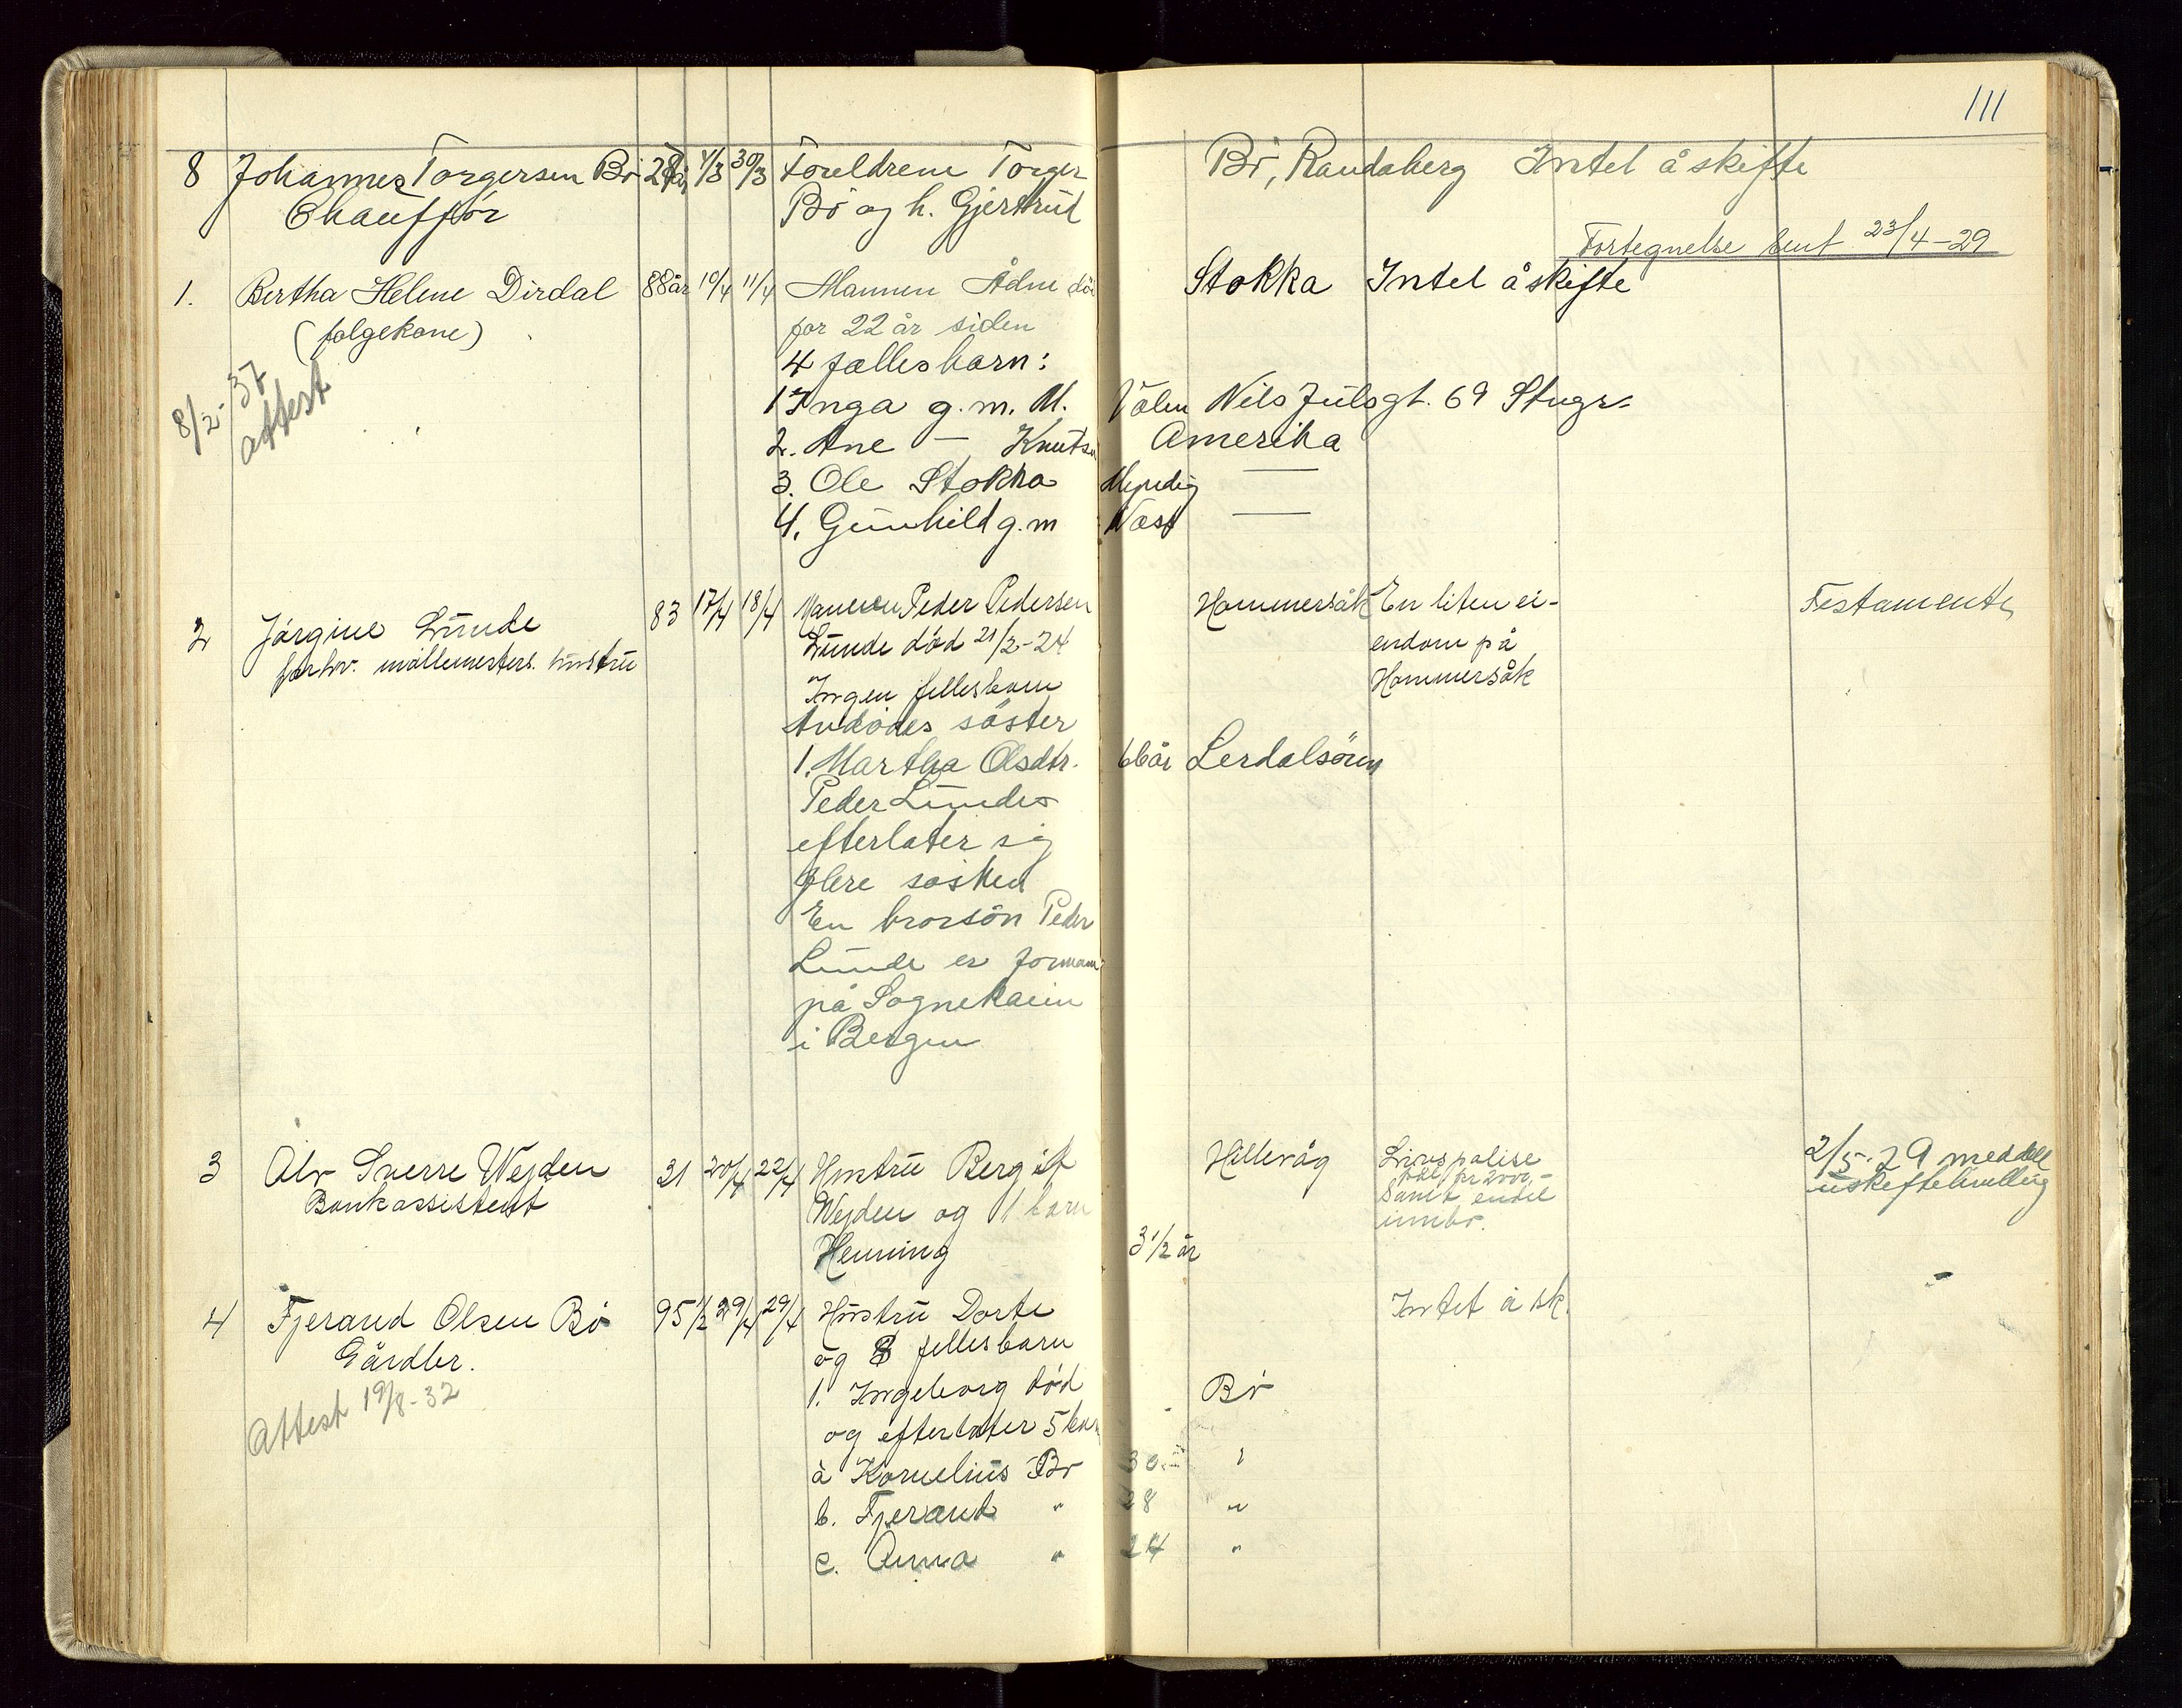 111
8 Johannes Torgersen Bö 28 år 30/3 Foreldrene Torger Bö, Randaberg Intet å skifte
Chaufför Bö og h. Gjertrud
Fortegnelse sent 23/4-29
1. Bertha Helene Dirdal 88 år 10/4 11/4 Mannen Ådne Stokka Intet å skifte
(følgekone) for 22 år siden
4 fællesbarn:
8/2-37 1 Inga g.m. M. Nils Juelsgt. 69 Stvgr.
attest 2. Ane — Amerika
3. Ole Stokka Myndig —
4. Gunhild g.m —
2 Jörgine Lunde 83 17/4 18/4 Mannen Peder Pedersen Hommersåk En liten ei- Testamente
forhv. möllemesters hustru Lunde död 21/2-24 endom på
Ingen fellesbarn Hommersåk
Avdödes söster
1. Martha Olsdtr. 66 år Lerdalsören
Peder Lundes
efterlater sig
flere sösken
En brorsön Peder
Lunde er formann
på Sognekaien
i Bergen
3 Alv Sverre Wejden 31 20/4 22/4 Hustru Bergit Hillevåg Livspolise 2/5-29 meddelt
Bankassistent Wejden og 1 barn pr 2000,- uskiftebevilling
samt endel
innbo.
Henning 3 1/2 år
4 Fjerand Olsen Bö 95 1/2 29/4 29/4 Hustru Dorte Intet å sk. -
Gårdbr. og 8 fellesbarn
Attest 19/8-32 1. Ingeborg död Bö
og efterlater 5 barn
a Kornelius Bö 30 "
b. Fjerand " 28 "
c. Anna " 24 "